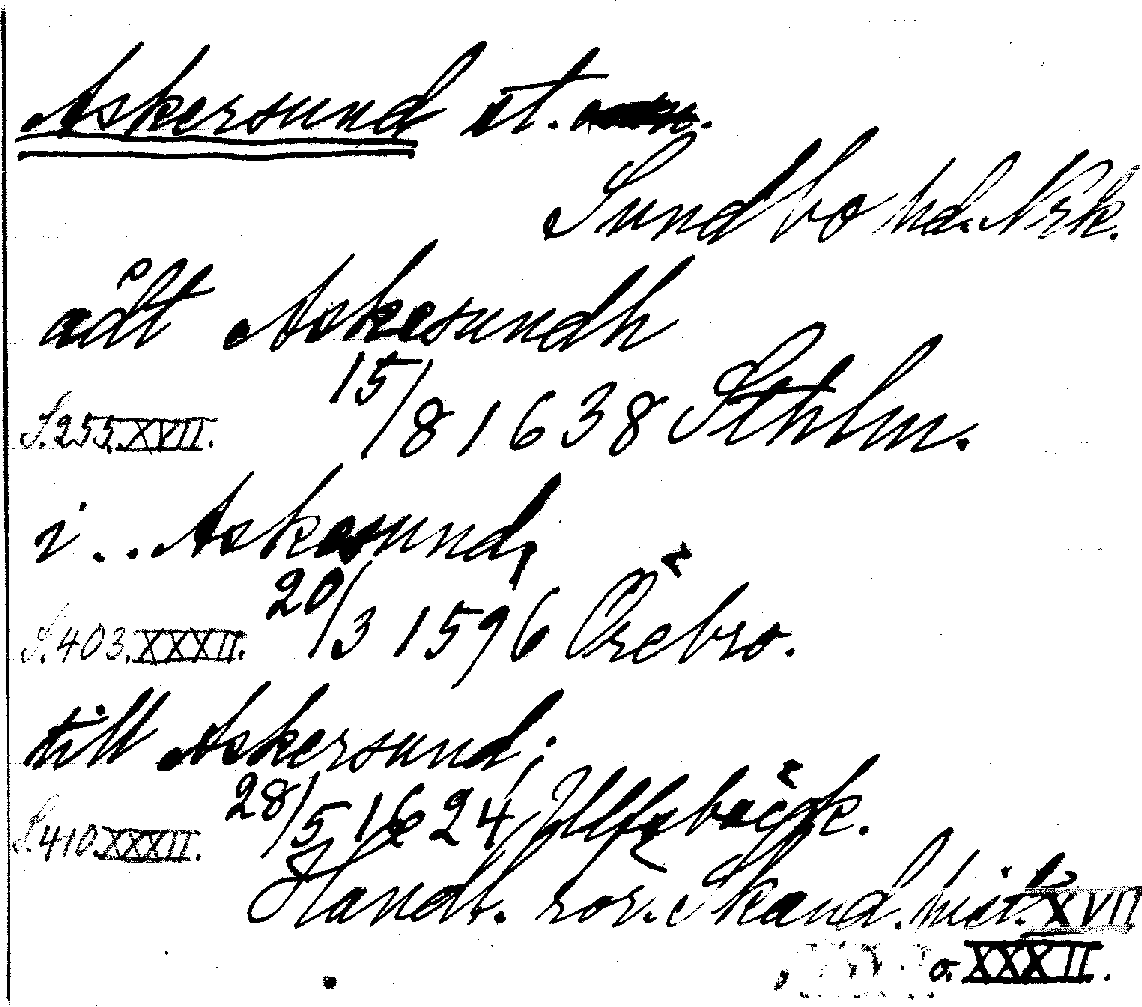 Askersund st.
Sundbo hd. Nrk.
ådt Askesundh
15/8 1638 Sthlm.
S. 255. XVII.
i . . Askesund,
20/3 1596 Örebro.
S. 403. XXXII.
till Askersund;
28/5 1624, Ulfzbäck.
S. 410. XXXII.
Handl. rör. Skand. hist. XVII
o. XXXII.